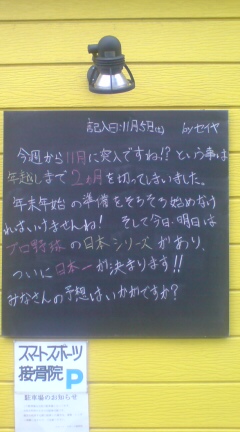 記入日・11月5日(土) byセイヤ
今週から11月に突入ですね!? という事は
年越しまで2ヵ月を切ってしまいました。
年末年始の準備をそろそろ始めなけ
ればいけませんね! そして今日・明日は
プロ野球の日本シリーズがあり、
ついに日本一が決まります!!
みなさんの予想はいかがですか?
スマートスポーツ
接骨院 P
駐車場のお知らせ